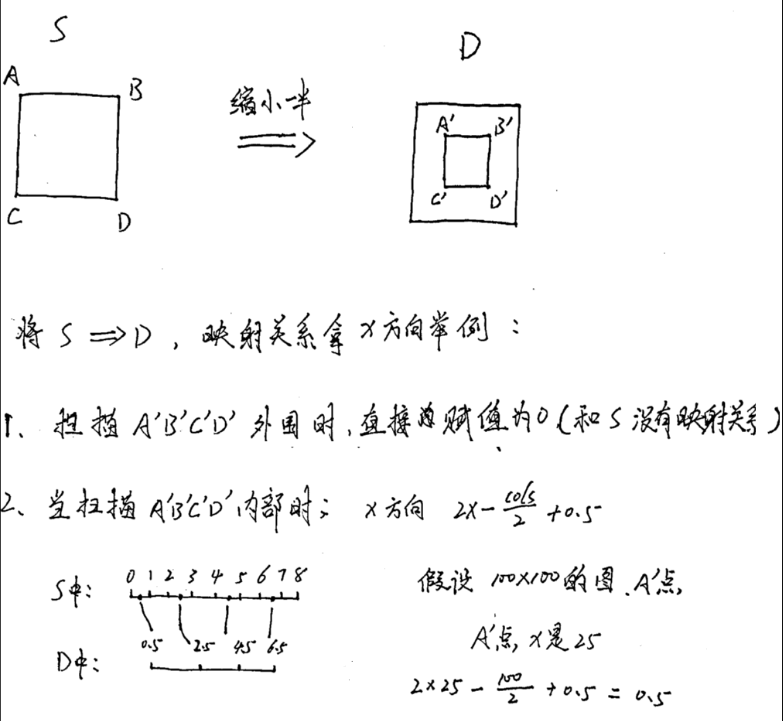 S
D
A
B
缩小一半
A'
B'
C
D
C'
D'
将 S ⟹ D , 映射关系拿 x方向举例 :
1、扫描 A'B'C'D' 外围时,直接 赋值为0(和 S 没有映射关系)
2、当扫描 A'B'C'D' 内部时; x方向 2x - cols/2 + 0.5
S中: 0 1 2 3 4 5 6 7 8
假设 100×100 的图、A'点,
0.5 2.5 4.5 6.5
A'点, x是25
D中:
2×25 - 100/2 + 0.5 = 0.5